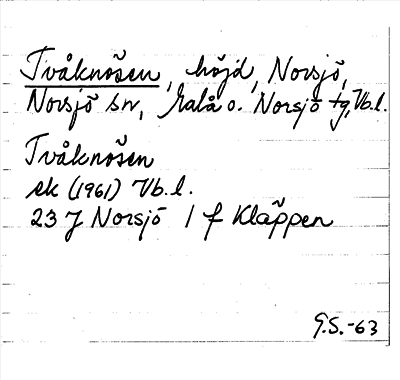 Tvåknösen, höjd, Norsjö,
Norsjö sn, Malå o. Norsjö tg, Vb.l.
Tvåknösen
ek (1961) Vb.l.
23 J Norsjö 1 f Kläppen
G.S.-63